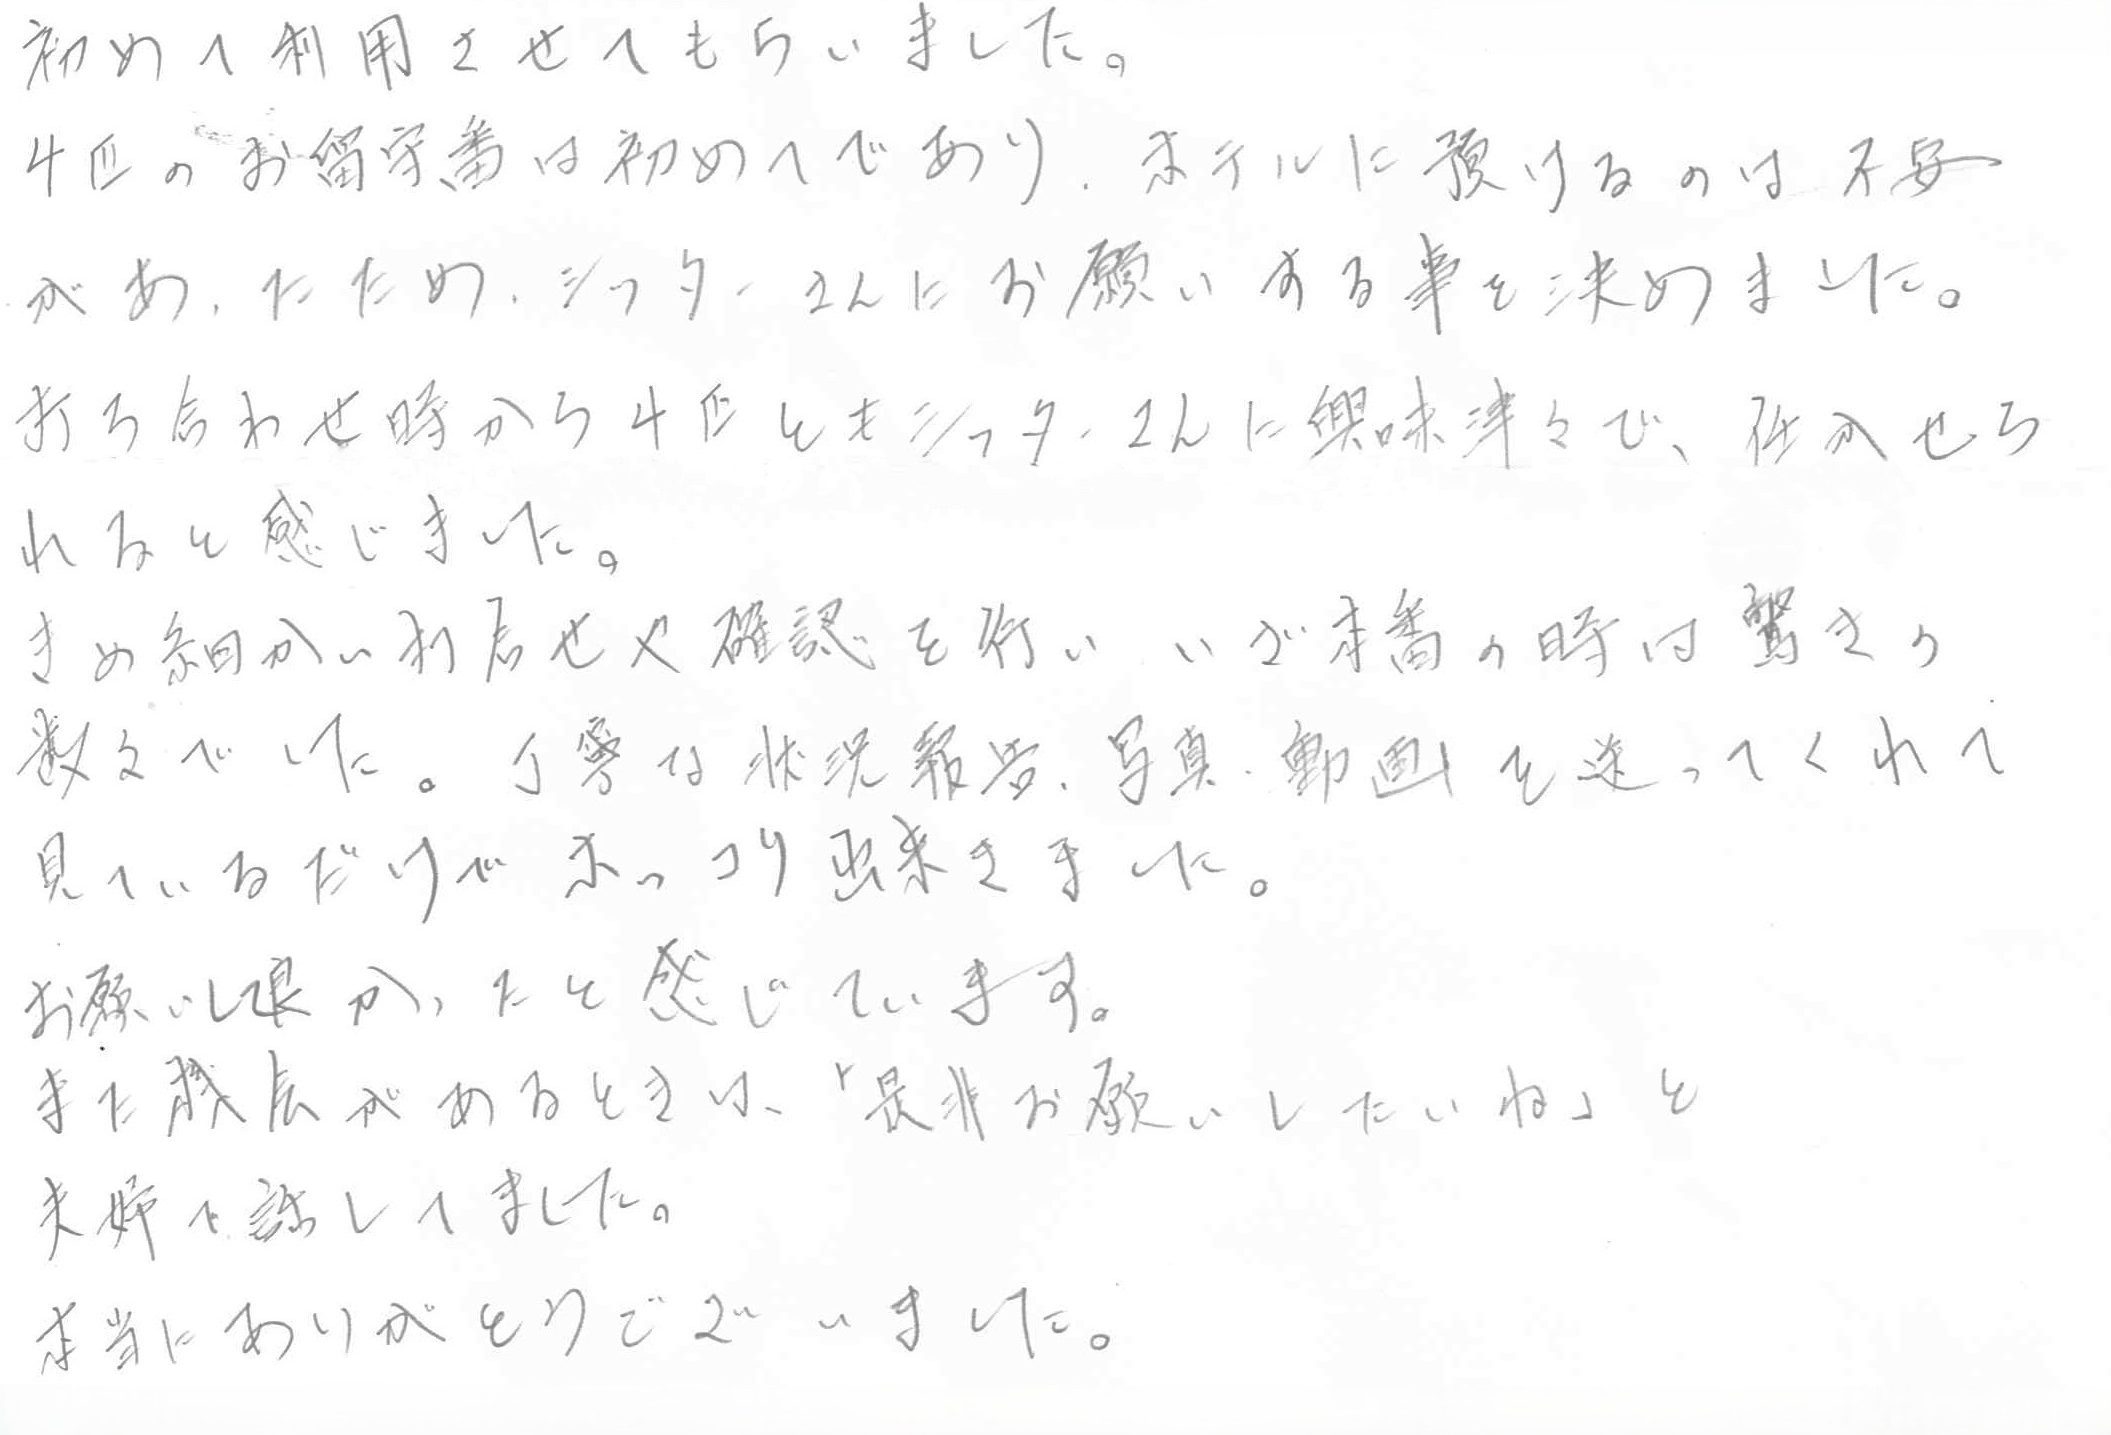 初めて利用させてもらいました。
4匹のお留守番は初めてであり、ホテルに預けるのは不安
があったため、シッターさんにお願いする事を決めました。
打ち合わせ時から4匹ともシッターさんに興味津々で、任かせら
れると感じました。
きめ細かい打合せや確認を行い いざ本番の時は驚きの
数々でした。丁寧な状況報告、写真・動画を送ってくれて
見ているだけでホッコリ出来きました。
お願いして良かったと感じています。
また機会があるときは、「是非お願いしたいね」と
夫婦で話してました。
本当にありがとうございました。